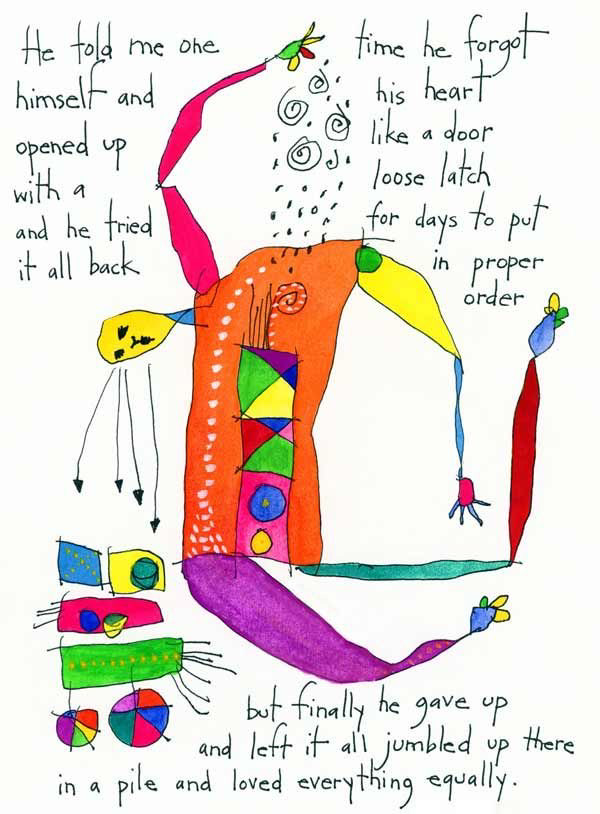 He told me one time he forgot
himself and his heart
opened up like a door
with a loose latch
and he tried for days to put
it all back in proper
order
but finally he gave up
and left it all jumbled up there
in a pile and loved everything equally.